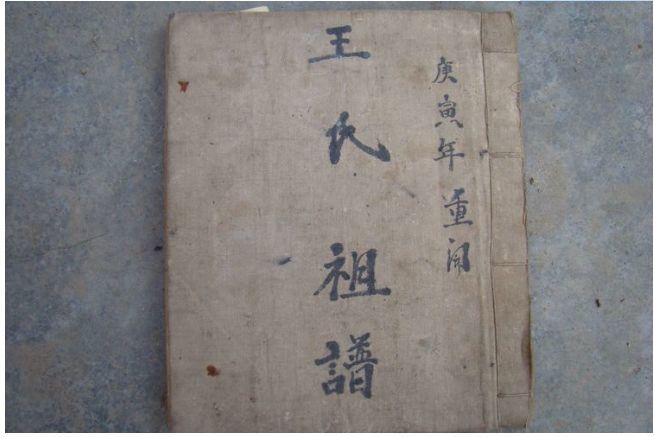 庚寅年 重
王氏祖譜